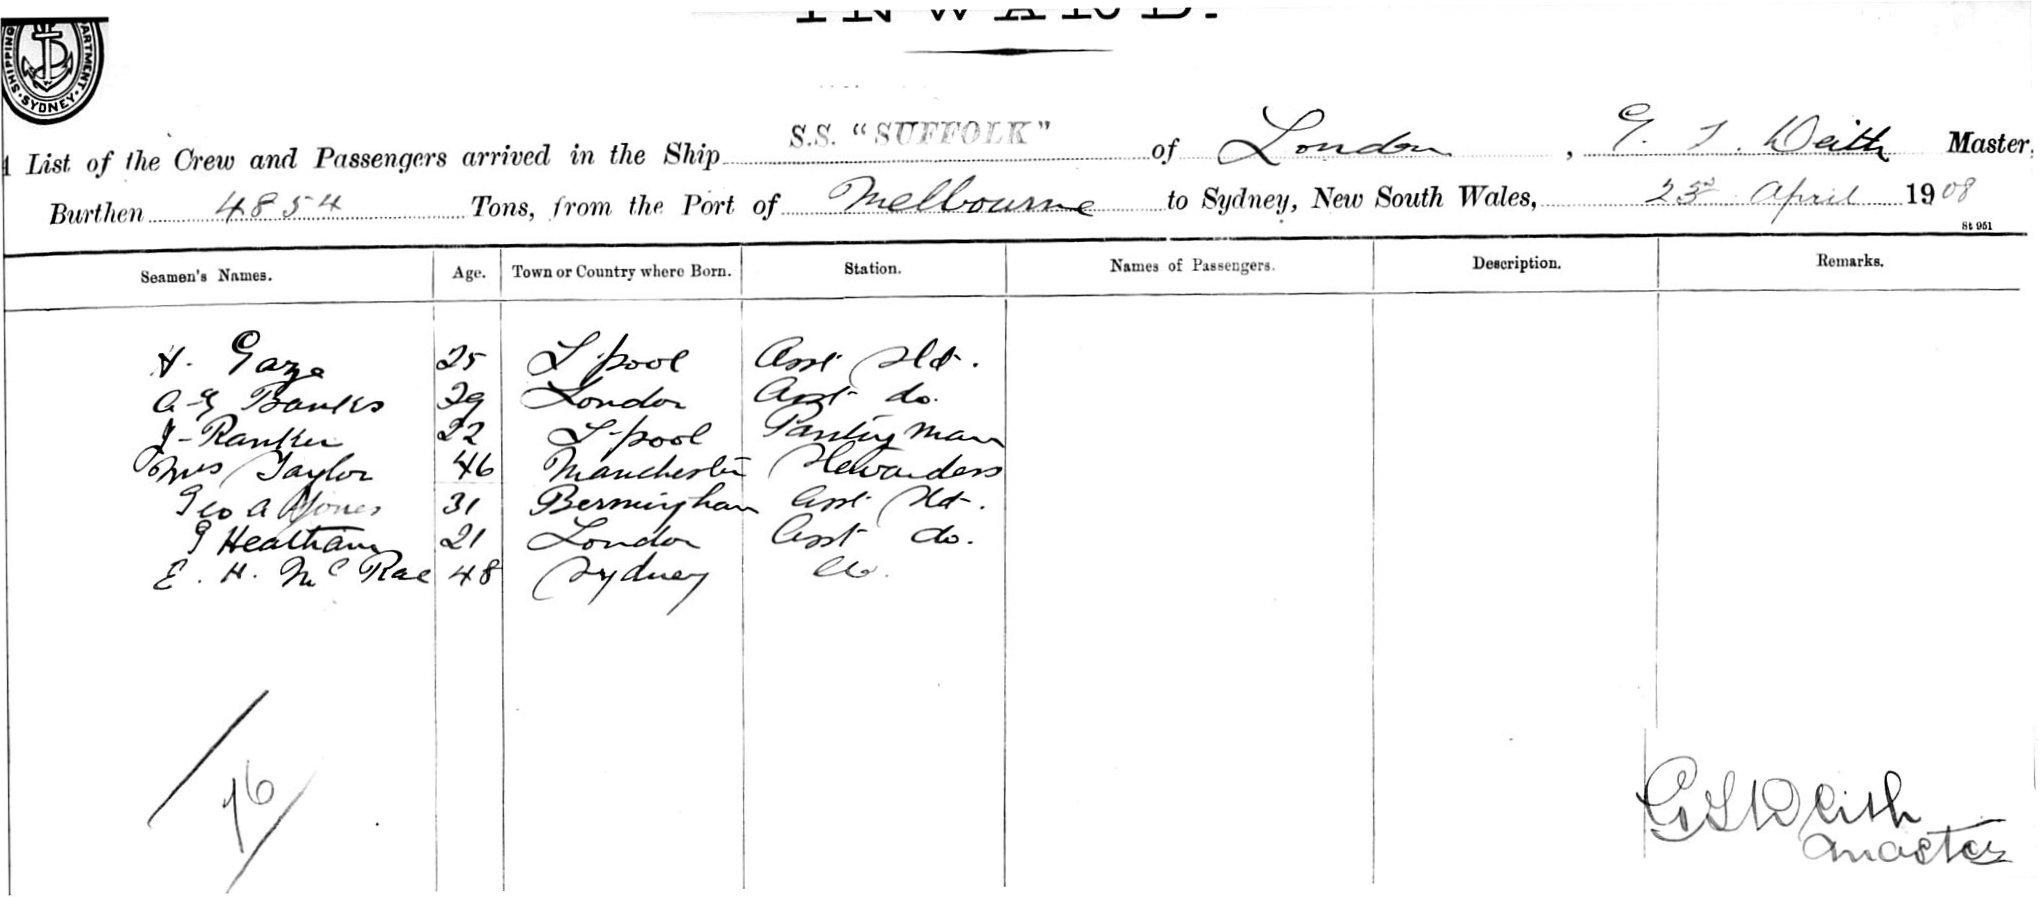 INWARD.
SHIPPING DEPARTMENT SYDNEY
List of the Crew and Passengers arrived in the Ship S.S. "SUFFOLK" of London, G. S. Deith Master,
Burthen 4854 Tons, from the Port of Melbourne to Sydney, New South Wales, 23rd April 1908
St 951
Seamen's Names. Age. Town or Country where Born. Station. Names of Passengers. Description. Remarks.
H. Gaze 25 L'pool Asst Std.
A G Banks 29 London Asst do.
J - 22 L'pool Pantry man
Mrs Taylor 46 Manchester Stewardess
Geo A Jones 31 Bermingham Asst Std.
G Heatham 21 London Asst do.
E. H. McRae 48 Sydney do.
76
G S Deith
Master